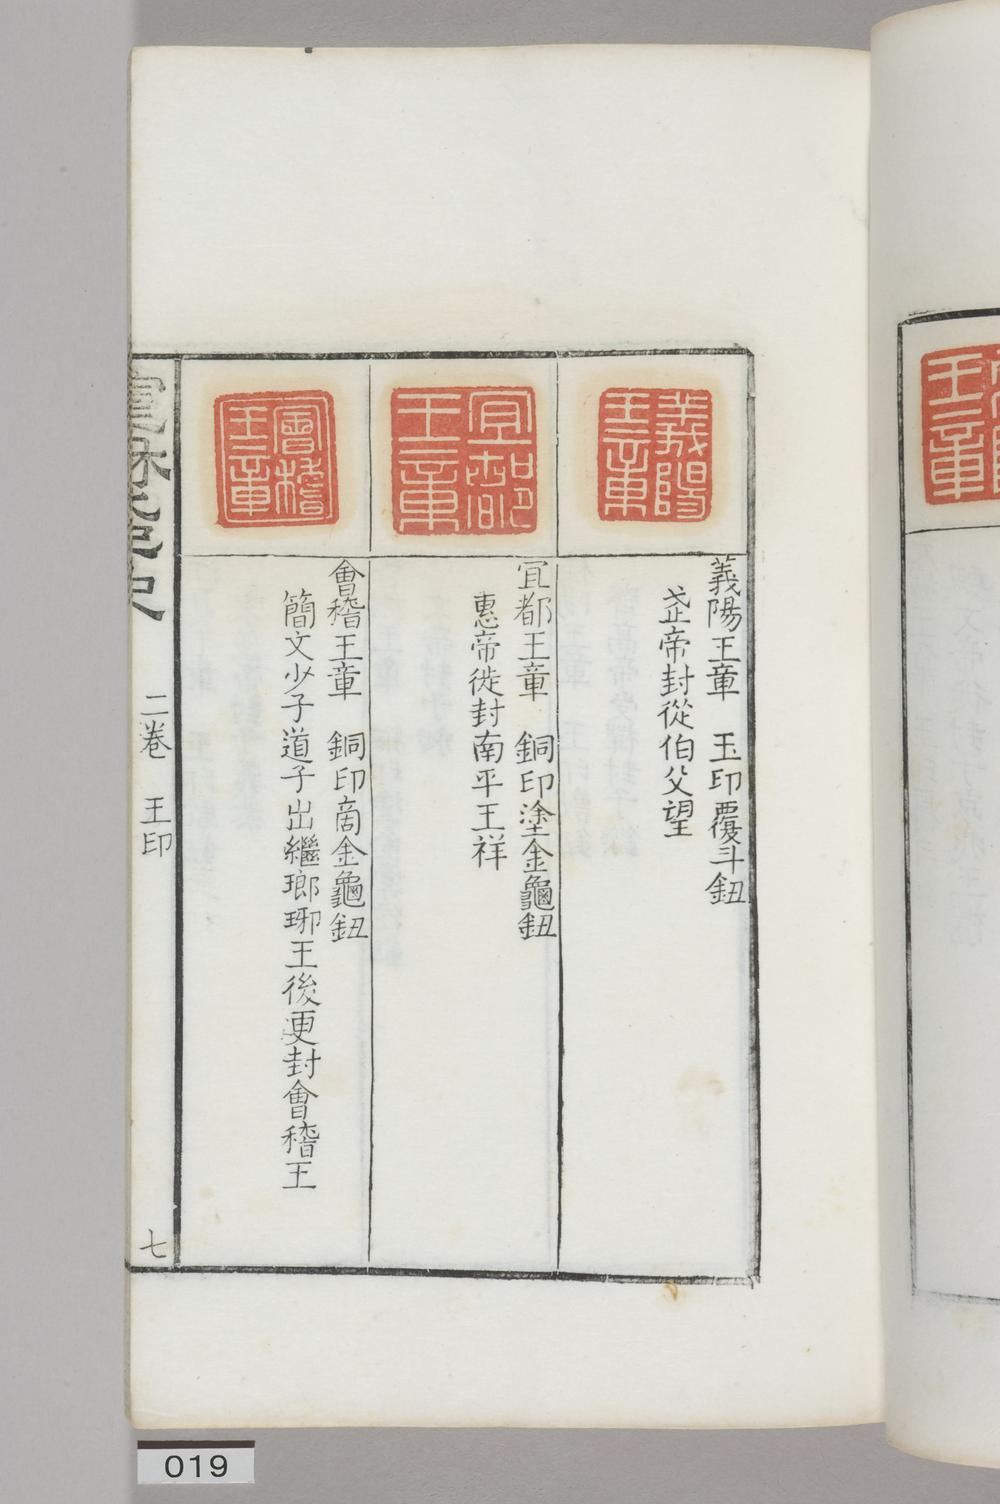 義陽王章
義陽王章　玉印覆斗鈕
武帝封從伯父望
宜都王章
宜都王章　銅印塗金龜鈕
惠帝徙封南平王祥
會稽王章
會稽王章　銅印啇金龜鈕
簡文少子道子出繼瑯琊王後更封會稽王
二卷　王印
七
019